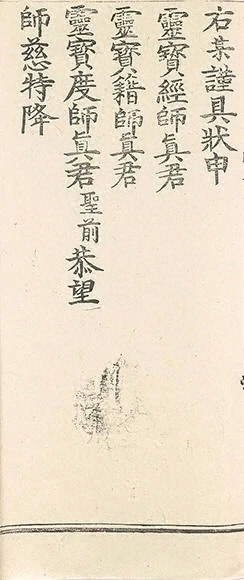 右某謹具狀申
靈寶經師眞君
靈寶籍師眞君
靈寶度師眞君聖前恭望
師慈特降